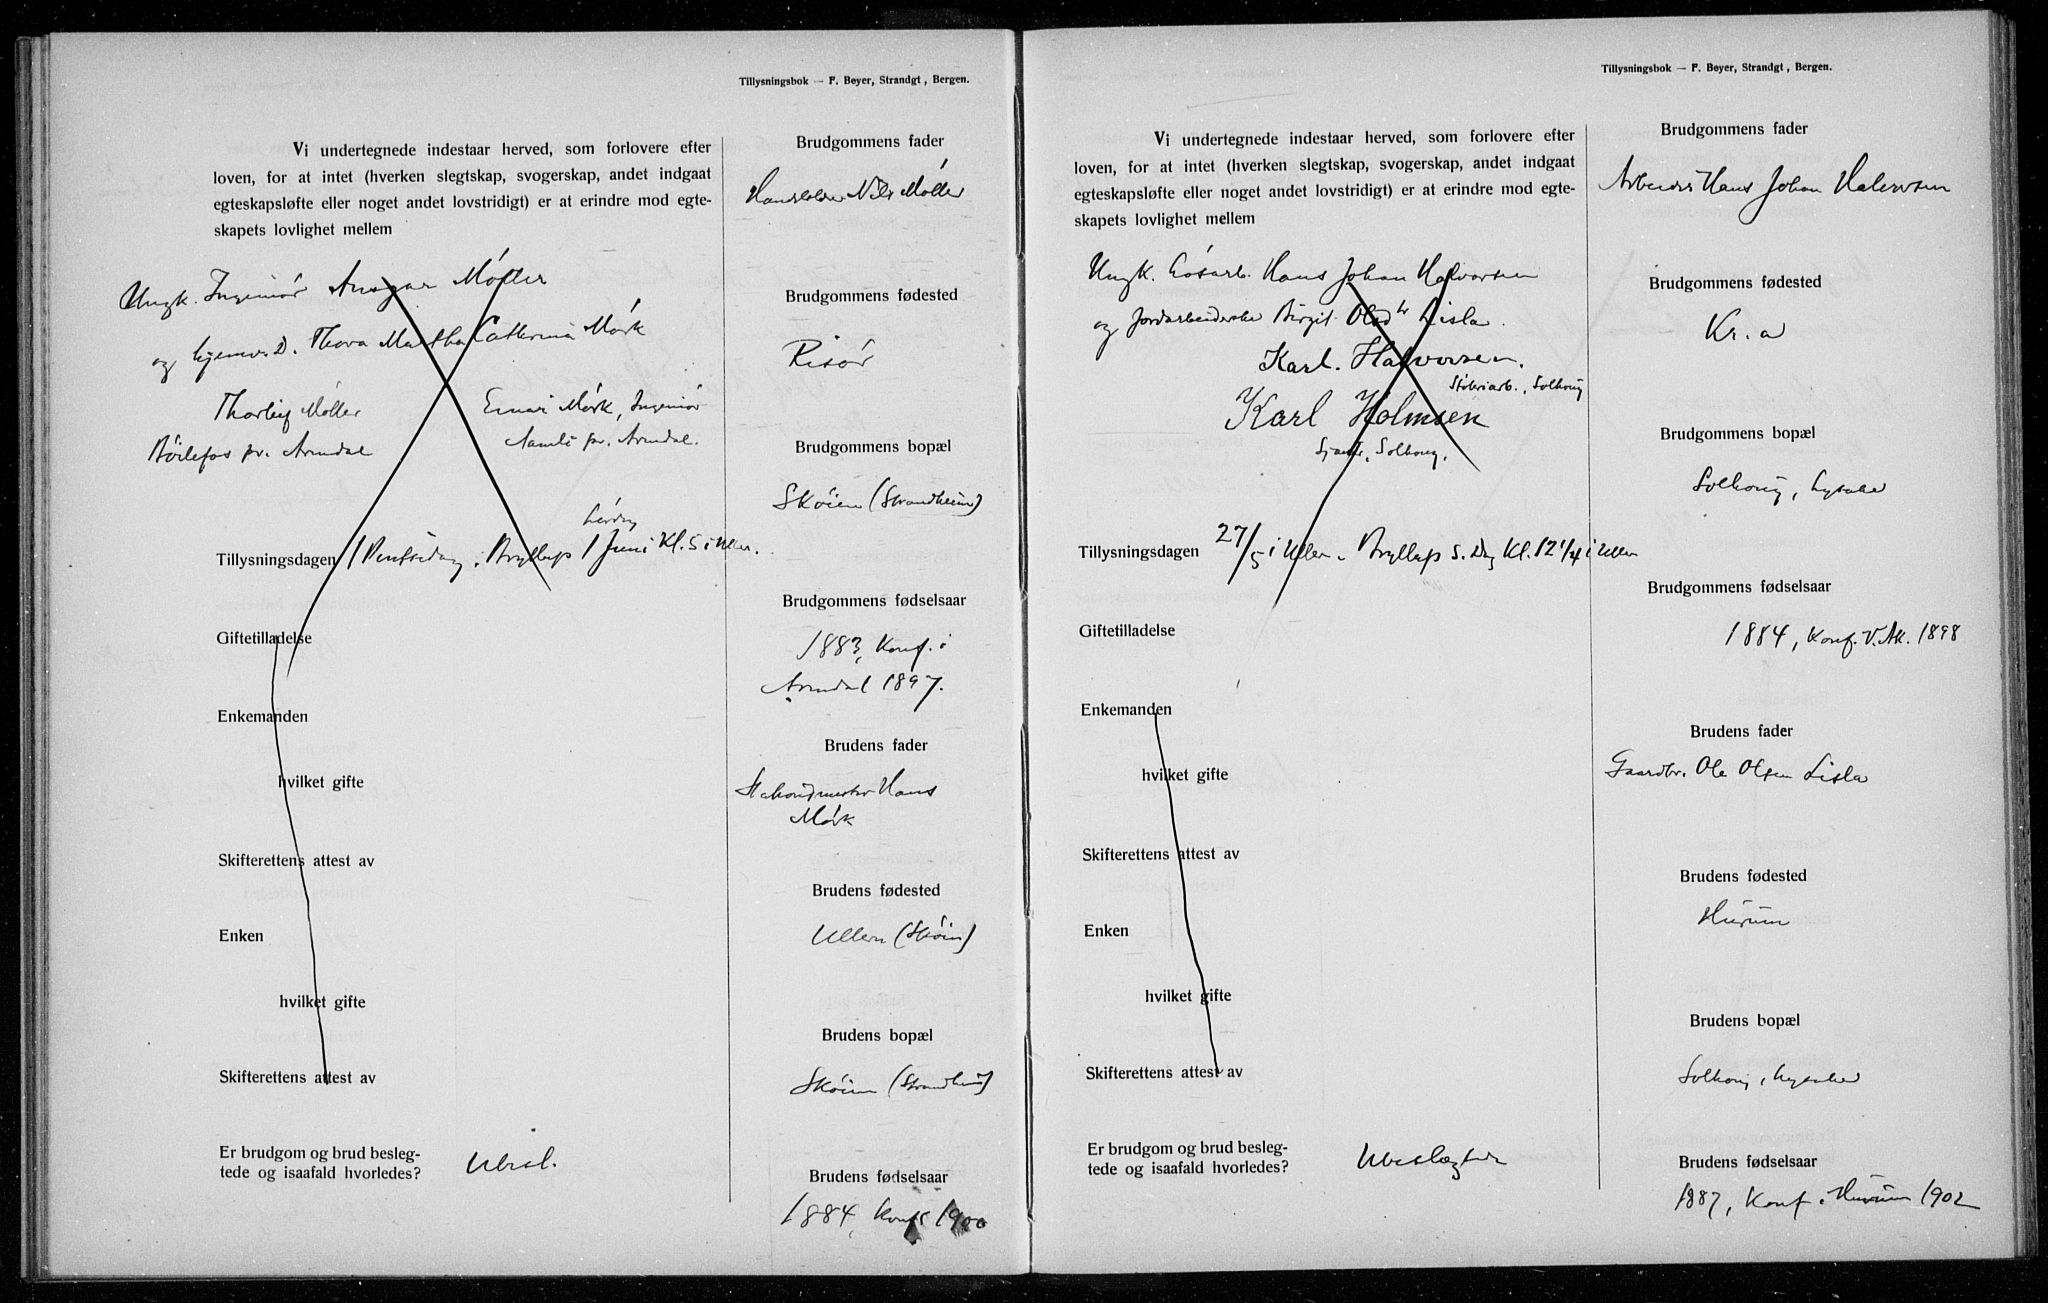 Tillysningsbok — F. Beyer, Strandgt, Bergen.
Vi undertegnede indestaar herved, som forlovere efter
loven, for at intet (hverken slegtskap, svogerskap, andet indgaat
egteskapsløfte eller noget andet lovstridigt) er at erindre mod egte-
skapets lovlighet mellem
Ungk. Ingeniør Ansgar Møller
og hjemv. D. Thora Martha Cathrina Mørk
Thorleif Møller
Bøilefos pr. Arendal
Einar Mørk, Ingeniør
pr. Arendal.
Tillysningsdagen 1 Pentsedag. Bryllup Lørdag 1 Juni Kl. 5 i Ullern.
Giftetilladelse
Enkemanden
hvilket gifte
Skifterettens attest av
Enken
hvilket gifte
Skifterettens attest av
Er brudgom og brud besleg-
tede og isaafald hvorledes? Ubesl.
Brudgommens fader
Nils Møller
Brudgommens fødested
Risør
Brudgommens bopæl
Skøien (Strandheim)
Brudgommens fødselsaar
1883, Konf. i
Arendal 1897.
Brudens fader
Stationsmester Hans
Mørk
Brudens fødested
Ullern (Skøien)
Brudens bopæl
Skøien (Strandheim)
Brudens fødselsaar
1884, Konf. 1900
Tillysningsbok — F. Beyer, Strandgt, Bergen.
Vi undertegnede indestaar herved, som forlovere efter
loven, for at intet (hverken slegtskap, svogerskap, andet indgaat
egteskapsløfte eller noget andet lovstridigt) er at erindre mod egte-
skapets lovlighet mellem
Ungk. Løsarb. Hans Johan Halvorsen
og Birgit Olsdtr Lisla.
Karl. Halvorsen.
Støberiarb., Solhoug
Karl Holmsen
Solhoug.
Tillysningsdagen 27/5 i Ullern. Bryllup s. Dag Kl. 12 1/4 i Ullern
Giftetilladelse
Enkemanden
hvilket gifte
Skifterettens attest av
Enken
hvilket gifte
Skifterettens attest av
Er brudgom og brud besleg-
tede og isaafald hvorledes? Ubeslægtede
Brudgommens fader
Arbeider Hans Johan Halvorsen
Brudgommens fødested
Kr.a
Brudgommens bopæl
Solhoug, Lysaker
Brudgommens fødselsaar
1884, Konf. V. Ak. 1898
Brudens fader
Gaardbr. Ole Olsen Lisla
Brudens fødested
Hurum
Brudens bopæl
Solhoug, Lysaker
Brudens fødselsaar
1887, Konf. i Hurum 1902